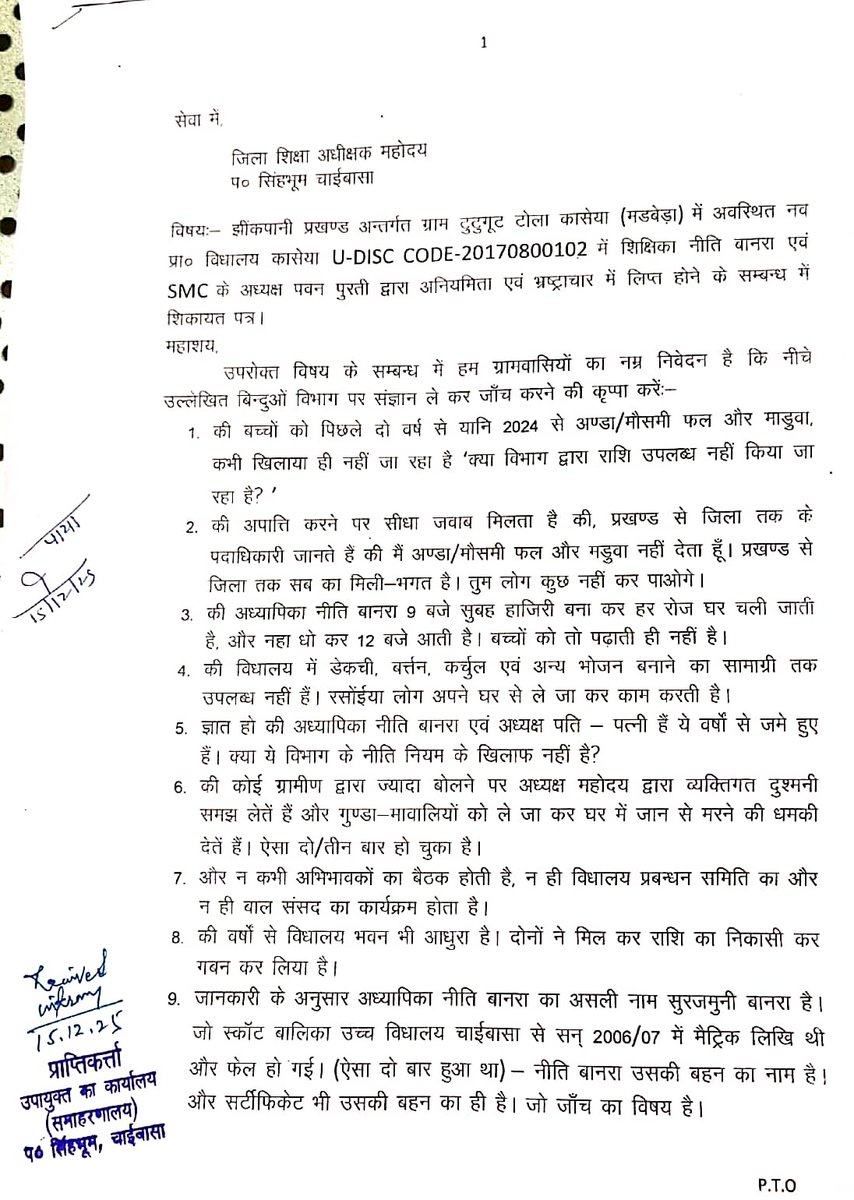 1
सेवा में,
जिला शिक्षा अधीक्षक महोदय
प० सिंहभूम चाईबासा
विषयः– झींकपानी प्रखण्ड अन्तर्गत ग्राम टुटुगूट टोला कासेया (मडबेड़ा) में अवस्थित नव
प्रा० विधालय कासेया U-DISC CODE-20170800102 में शिक्षिका नीति बानरा एवं
SMC के अध्यक्ष पवन पुरती द्वारा अनियमिता एवं भ्रष्ट्राचार में लिप्त होने के सम्बन्ध में
शिकायत पत्र।
महाशय,
उपरोक्त विषय के सम्बन्ध में हम ग्रामवासियों का नम्र निवेदन है कि नीचे
उल्लेखित बिन्दुओं विभाग पर संज्ञान ले कर जाँच करने की कृप्पा करेंः–
1. की बच्चों को पिछले दो वर्ष से यानि 2024 से अण्डा/मौसमी फल और माडुवा,
कभी खिलाया ही नहीं जा रहा है 'क्या विभाग द्वारा राशि उपलब्ध नहीं किया जा
रहा है? '
2. की अपात्ति करने पर सीधा जवाब मिलता है की, प्रखण्ड से जिला तक के
पदाधिकारी जानते हैं की मैं अण्डा/मौसमी फल और मडुवा नहीं देता हूँ। प्रखण्ड से
जिला तक सब का मिली–भगत है। तुम लोग कुछ नहीं कर पाओगे।
3. की अध्यापिका नीति बानरा 9 बजे सुबह हाजिरी बना कर हर रोज घर चली जाती
है, और नहा धो कर 12 बजे आती है। बच्चों को तो पढ़ाती ही नहीं है।
4. की विधालय में डेकची, बर्त्तन, कर्चुल एवं अन्य भोजन बनाने का सामाग्री तक
उपलब्ध नहीं हैं। रसोंईया लोग अपने घर से ले जा कर काम करती है।
5. ज्ञात हो की अध्यापिका नीति बानरा एवं अध्यक्ष पति – पत्नी हैं ये वर्षो से जमे हुए
हैं। क्या ये विभाग के नीति नियम के खिलाफ नहीं है?
6. की कोई ग्रामीण द्वारा ज्यादा बोलने पर अध्यक्ष महोदय द्वारा व्यक्तिगत दुश्मनी
समझ लेतें हैं और गुण्डा–मावालियों को ले जा कर घर में जान से मरने की धमकी
देतें हैं। ऐसा दो/तीन बार हो चुका है।
7. और न कभी अभिभावकों का बैठक होती है, न ही विधालय प्रबन्धन समिति का और
न ही वाल संसद का कार्यक्रम होता है।
8. की वर्षो से विधालय भवन भी आधुरा है। दोनों ने मिल कर राशि का निकासी कर
गबन कर लिया है।
9. जानकारी के अनुसार अध्यापिका नीति बानरा का असली नाम सुरजमुनी बानरा है।
जो स्कॉट बालिका उच्च विधालय चाईबासा से सन् 2006/07 में मैट्रिक लिखि थी
और फेल हो गई। (ऐसा दो बार हुआ था) – नीति बानरा उसकी बहन का नाम है!
और सर्टीफिकेट भी उसकी बहन का ही है। जो जाँच का विषय है।
पाया
15/12/25
Received
15.12.25
प्राप्तिकर्त्ता
उपायुक्त का कार्यालय
(समाहरणालय)
प० सिंहभूम, चाईबासा
P.T.O